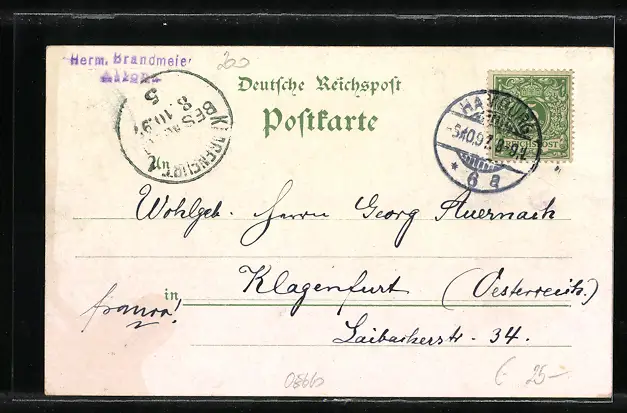 Herm. Brandmeier
Altona
Deutsche Reichspost
Postkarte
KLAGENFURT
BEST
8.10.97
5
HAMBURG
5.10.97. 8-9
* 6 a
REICHSPOST
An
Wohlgeb. Herrn Georg Auernach
in Klagenfurt (Oesterreich.)
franco!
Laibacherstr. 34.
25-